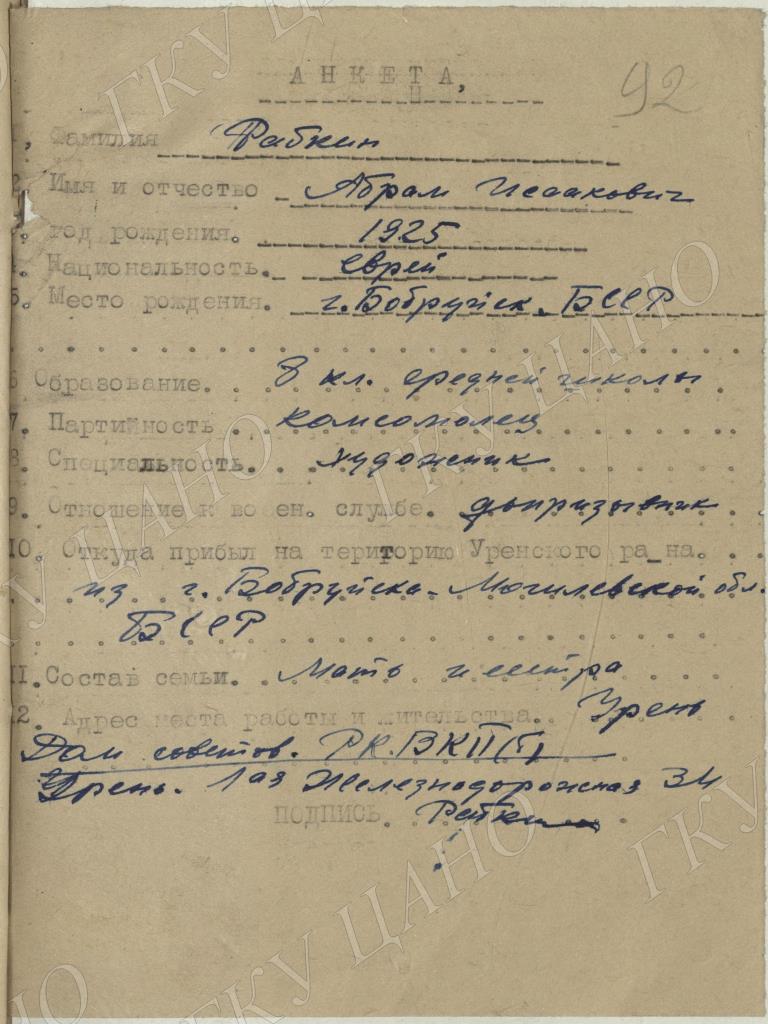 АНКЕТА,
92
1, Фамилия Рабкин
2. Имя и отчество Абрам Исаакович
3. год рождения. 1925
4. Национальность. еврей
5. Место рождения. г. Бобруйск. БССР
6 Образование. 8 кл. средней школы
7. Партийность комсомолец
8. Специальность. художник
9. Отношение к воен. службе. допризывник
10. Откуда прибыл на територию Уренского ра_на.
из г. Бобруйска. Могилевской обл.
БССР
11. Состав семьи. Мать и сестра
12. Адрес места работы и жительства. Урень
Дом советов. РК. ВКП(б)
Урень. 1ая Железнодорожная 34
ПОДПИСЬ. Рабкин
ГКУ ЦАНО